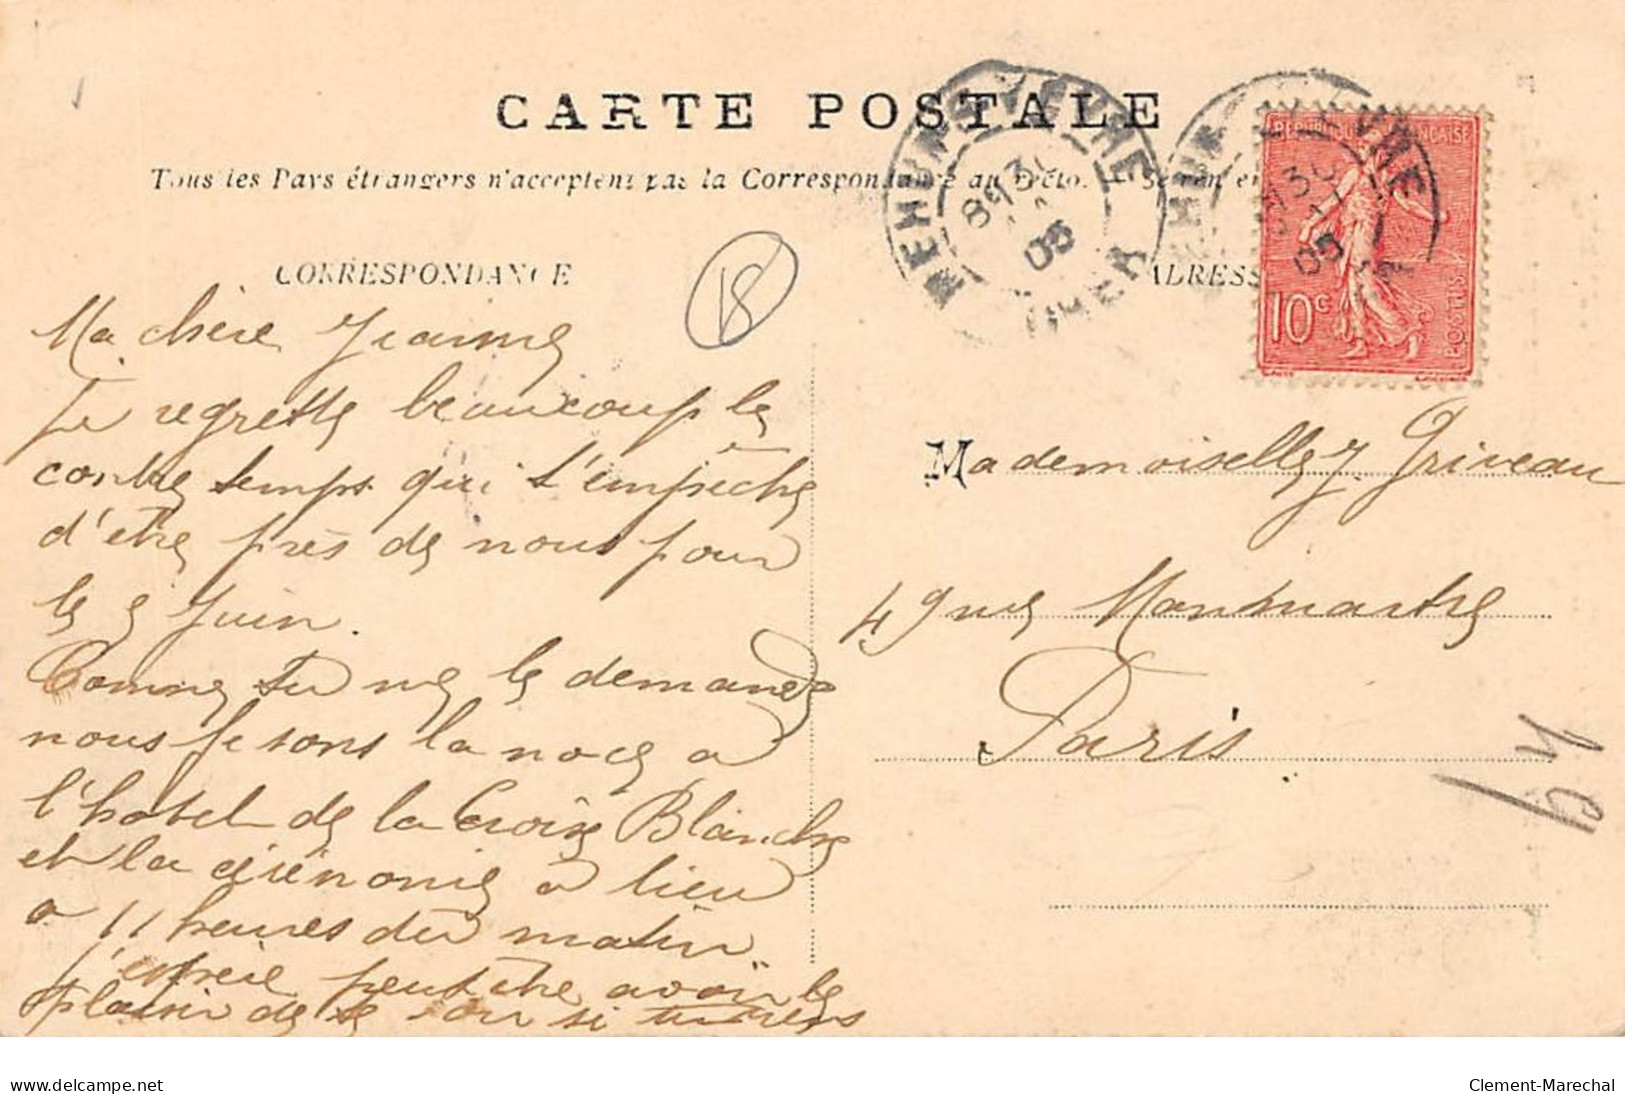 CARTE POSTALE
Tous les Pays étrangers n'acceptent pas la Correspondance au
CORRESPONDANCE
ADRESS
18
RÉPUBLIQUE FRANÇAISE
10 c
POSTES
MEHUN-S-YEVRE
CHER
05
Ma chère Jeanne
Je regrette beaucoup le
contre temps qui t'empêche
d'être près de nous pour
le 5 Juin.
Comme tu me le demande
nous fesons la noce a
l'hotel de la Croix Blanche
et la cérémonie a lieu
a 11 heures du matin
j'espère peut être avoir le
plaisir de te voir si tu viens
Mademoiselle J. Griveau
49 rue Montmartre
Paris
delcampe.net
Clement-Marechal